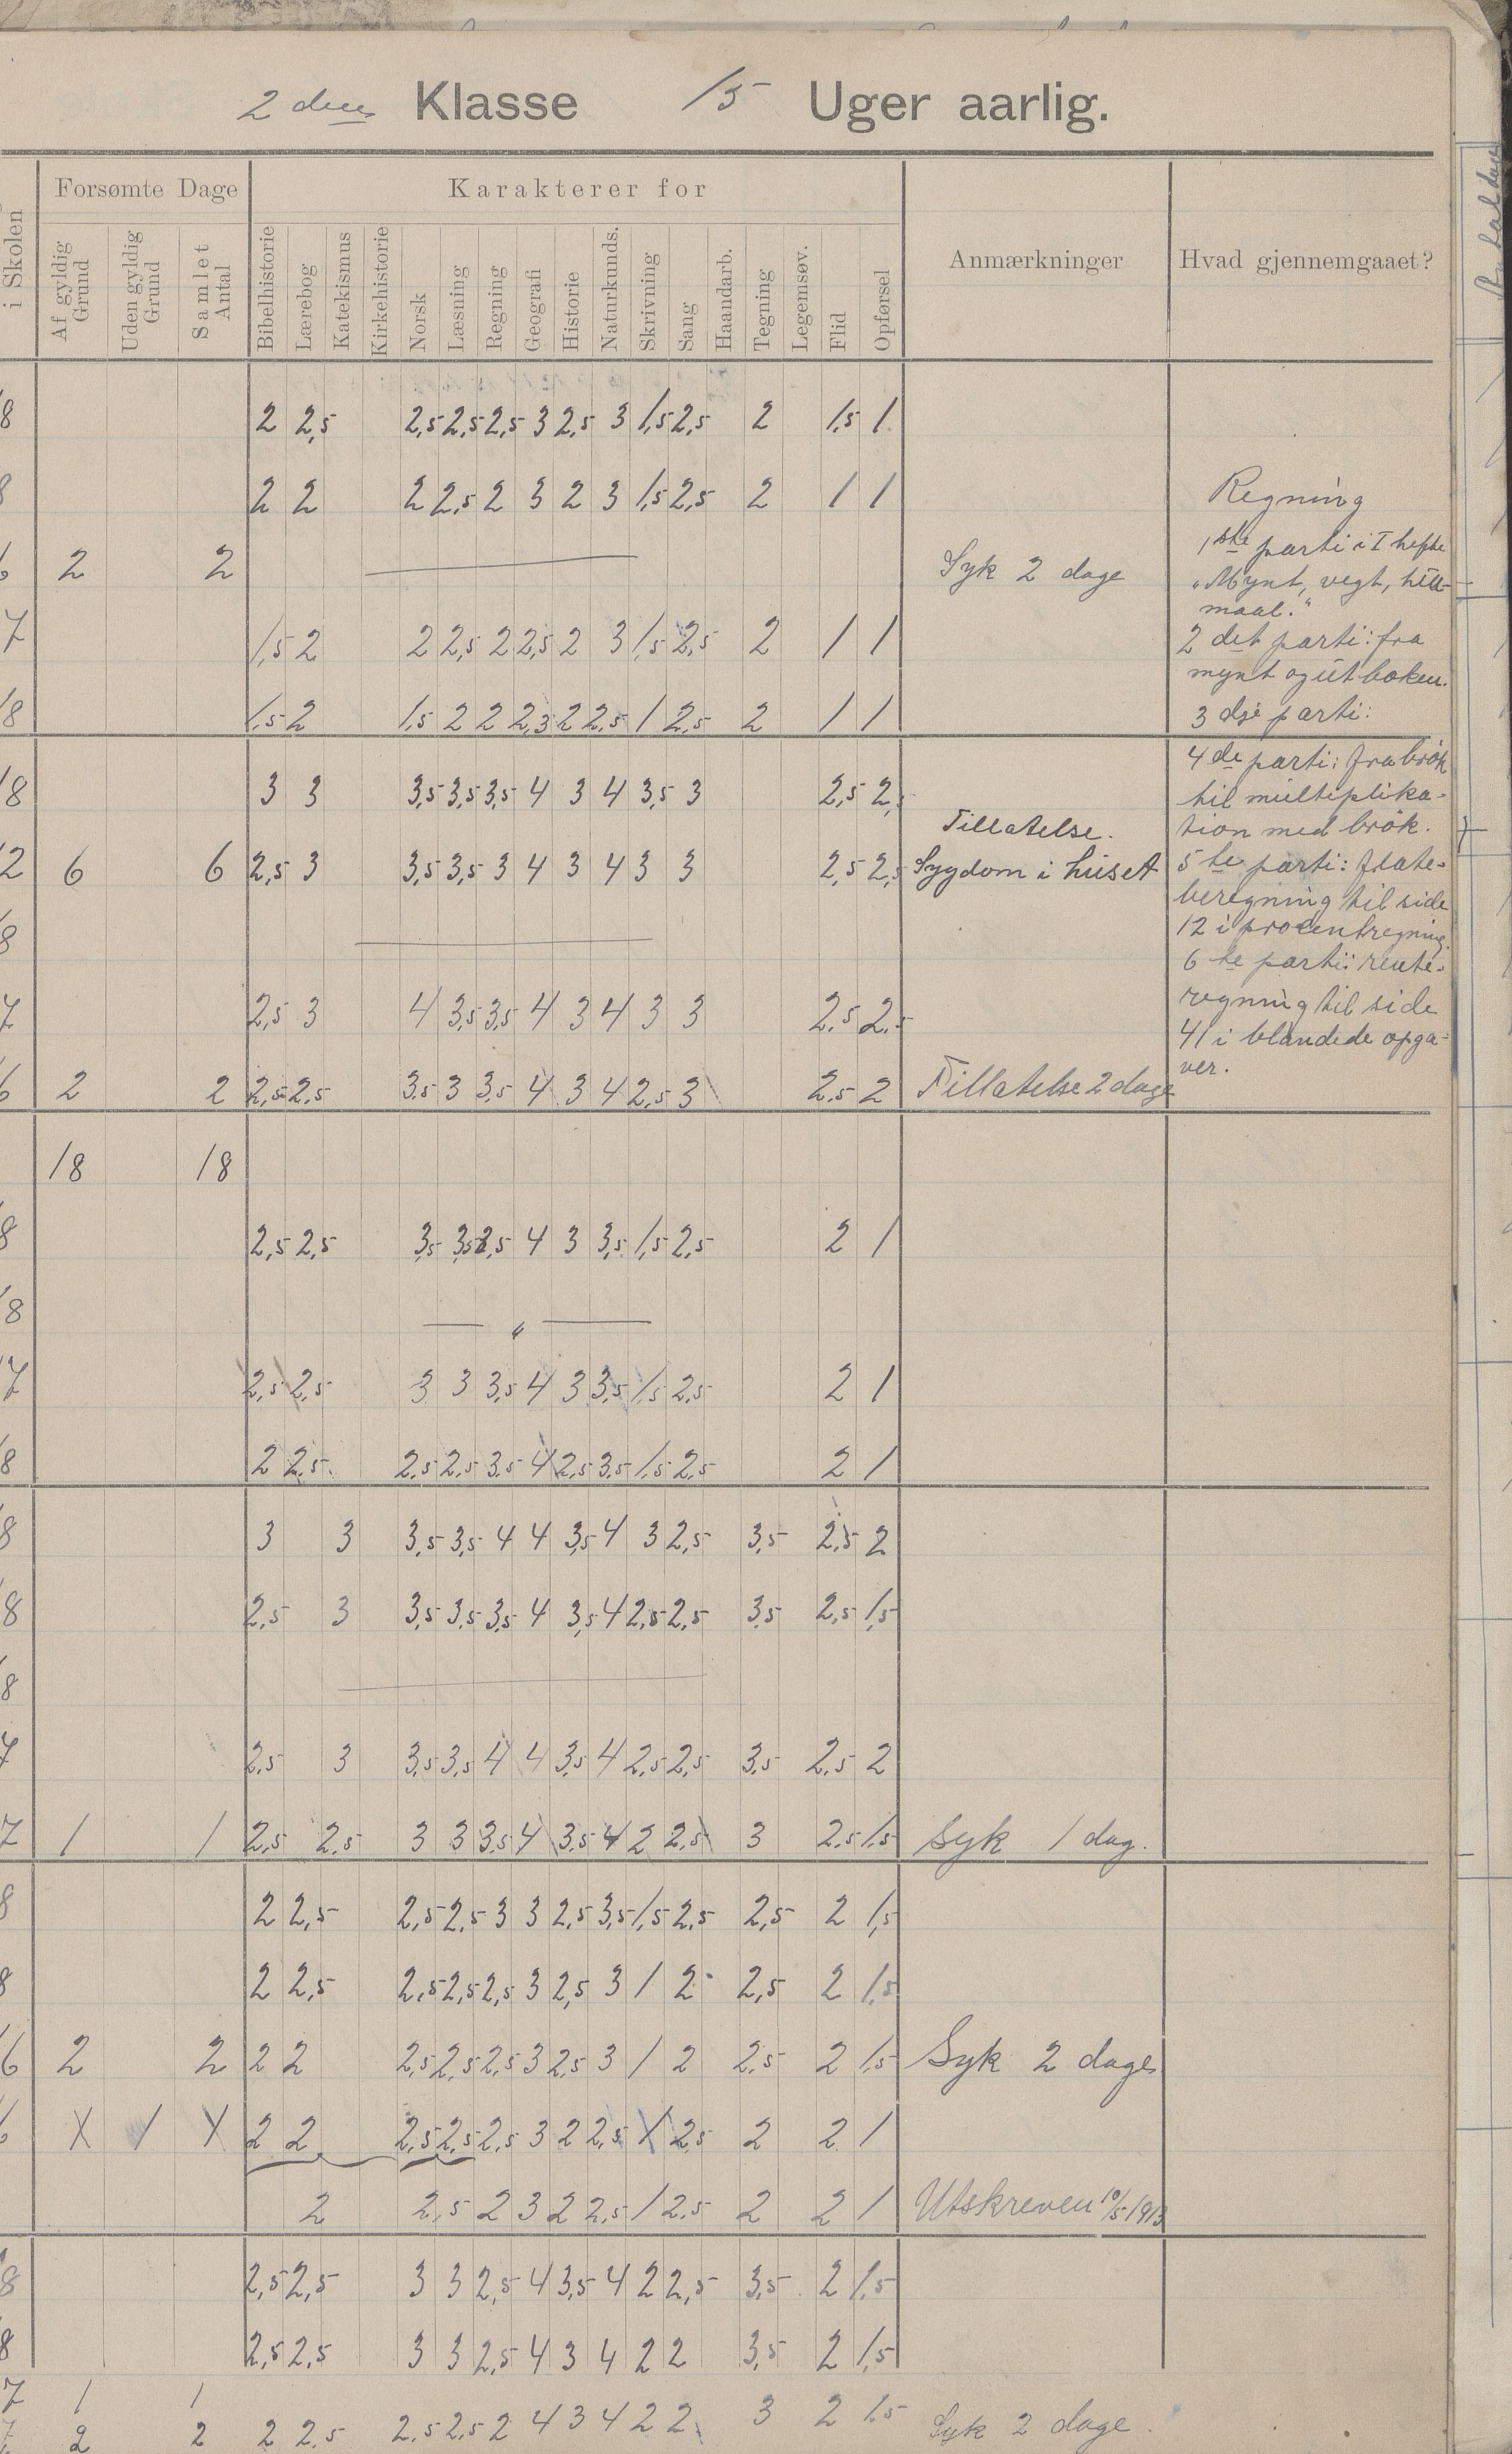 2den Klasse 15 Uger aarlig.
i Skolen Forsømte Dage Karakterer for Anmærkninger Hvad gjennemgaaet?
Af gyldig Grund Uden gyldig Grund Samlet Antal Bibelhistorie Lærebog Katekismus Kirkehistorie Norsk Læsning Regning Geografi Historie Naturkunds. Skrivning Sang Haandarb. Tegning Legemsøv. Flid Opførsel
8 2 2,5 2,5 2,5 2,5 3 2,5 3 1,5 2,5 2 1,5 1
8 2 2 2 2,5 2 3 2 3 1,5 2,5 2 1 1
6 2 2 Syk 2 dage
7 1,5 2 2 2,5 2 2,5 2 3 1,5 2,5 2 1 1
18 1,5 2 1,5 2 2 2,3 2 2,5 1 2,5 2 1 1
Regning
1ste parti i I hefte
"Mynt, vegt, till-
maal."
2det parti: fra
mynt og ut boken.
3dje parti:
18 3 3 3,5 3,5 3,5 4 3 4 3,5 3 2,5 2,5
Tillatelse.
12 6 6 2,5 3 3,5 3,5 3 4 3 4 3 3 2,5 2,5 Sygdom i huset
8
7 2,5 3 4 3,5 3,5 4 3 4 3 3 2,5 2,5
6 2 2 2,5 2,5 3,5 3 3,5 4 3 4 2,5 3 2,5 2 Tillatelse 2 dage
4de parti: fra brøk
til multiplika-
tion med brøk.
5te parti: flate-
beregning til side
12 i procentregning.
6te parti: rente-
regning til side
41 i blandede opga-
ver.
18 18
8 2,5 2,5 3,5 3,5 3,5 4 3 3,5 1,5 2,5 2 1
18 "
17 2,5 2,5 3 3 3,5 4 3 3,5 1,5 2,5 2 1
18 2 2,5 2,5 2,5 3,5 4 2,5 3,5 1,5 2,5 2 1
8 3 3 3,5 3,5 4 4 3,5 4 3 2,5 3,5 2,5 2
8 2,5 3 3,5 3,5 3,5 4 3,5 4 2,5 2,5 3,5 2,5 1,5
8
7 2,5 3 3,5 3,5 4 4 3,5 4 2,5 2,5 3,5 2,5 2
7 1 1 2,5 2,5 3 3 3,5 4 3,5 4 2 2,5 3 2,5 1,5 Syk 1 dag.
8 2 2,5 2,5 2,5 3 3 2,5 3,5 1,5 2,5 2,5 2 1,5
8 2 2,5 2,5 2,5 2,5 3 2,5 3 1 2 2,5 2 1,5
16 2 2 2 2 2,5 2,5 2,5 3 2,5 3 1 2 2,5 2 1,5 Syk 2 dage
6 2 2 2,5 2,5 2,5 3 2 2,5 1 2,5 2 2 1
2 2,5 2 3 2 2,5 1 2,5 2 2 1 Utskreven 10/5 1913
8 2,5 2,5 3 3 2,5 4 3,5 4 2 2,5 3,5 2 1,5
8 2,5 2,5 3 3 2,5 4 3 4 2 2 3,5 2 1,5
7 1 1
7 2 2 2 2,5 2,5 2,5 2 4 3 4 2 2 3 2 1,5 Syk 2 dage.